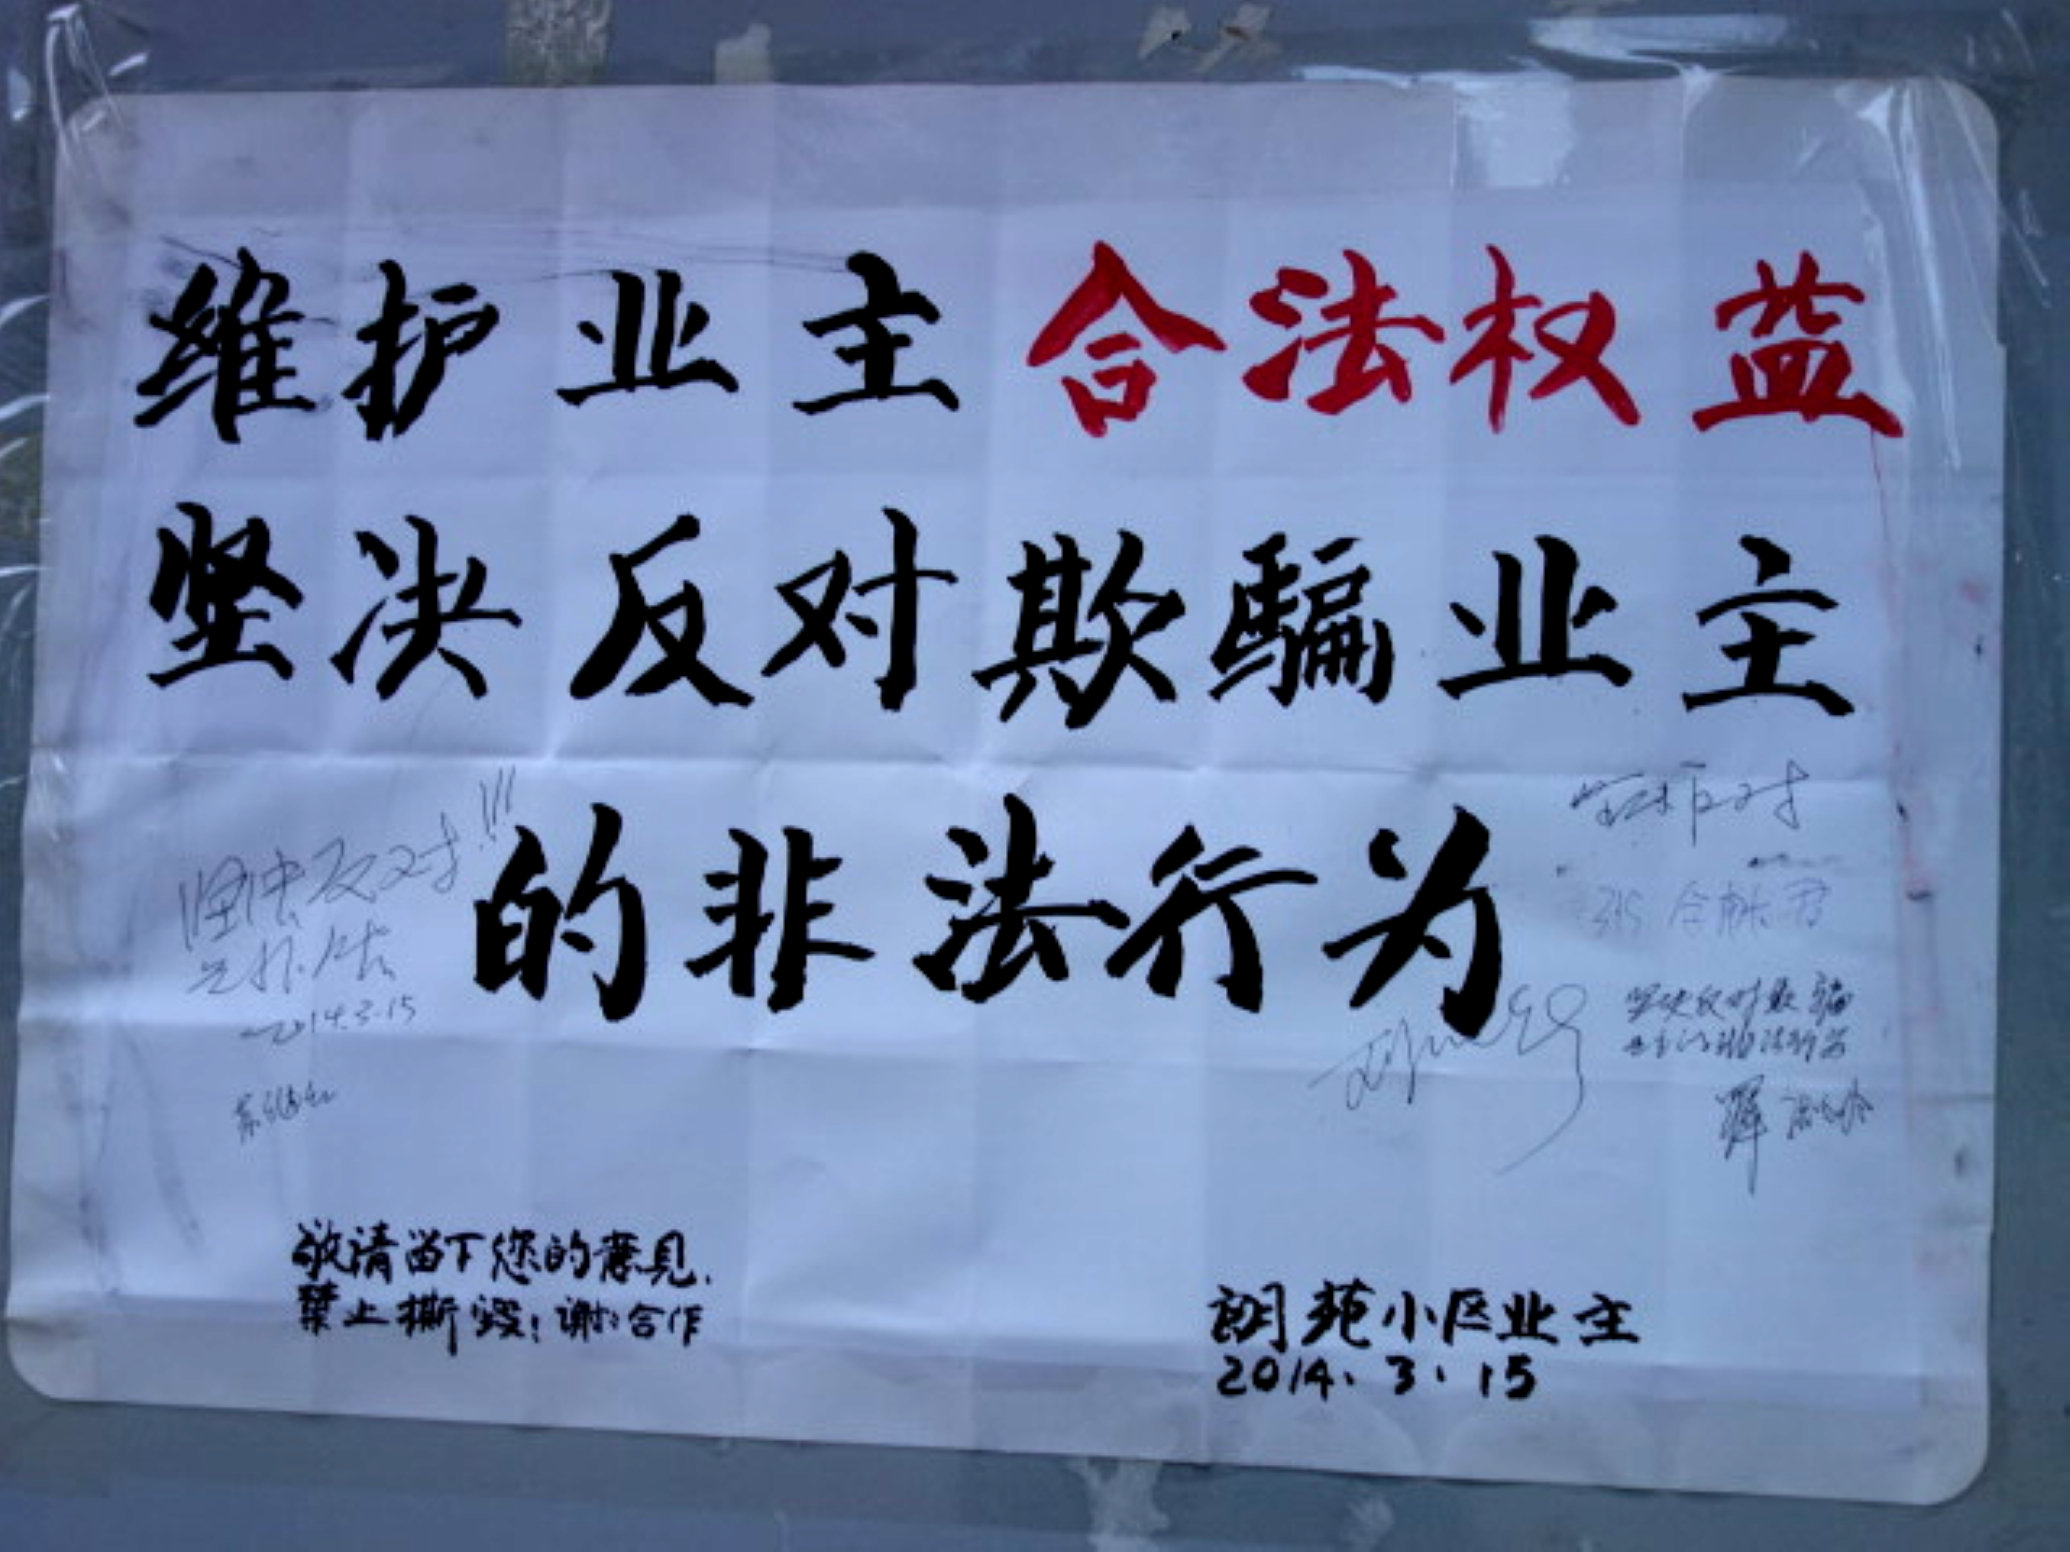 维护业主合法权益
坚决反对欺骗业主
的非法行为
坚决反对!!!
2014.3.15
坚决反对
315
坚决反对欺骗
业主的非法行为
敬请留下您的意见.
禁止撕毁!谢谢合作
朗苑小区业主
2014.3.15